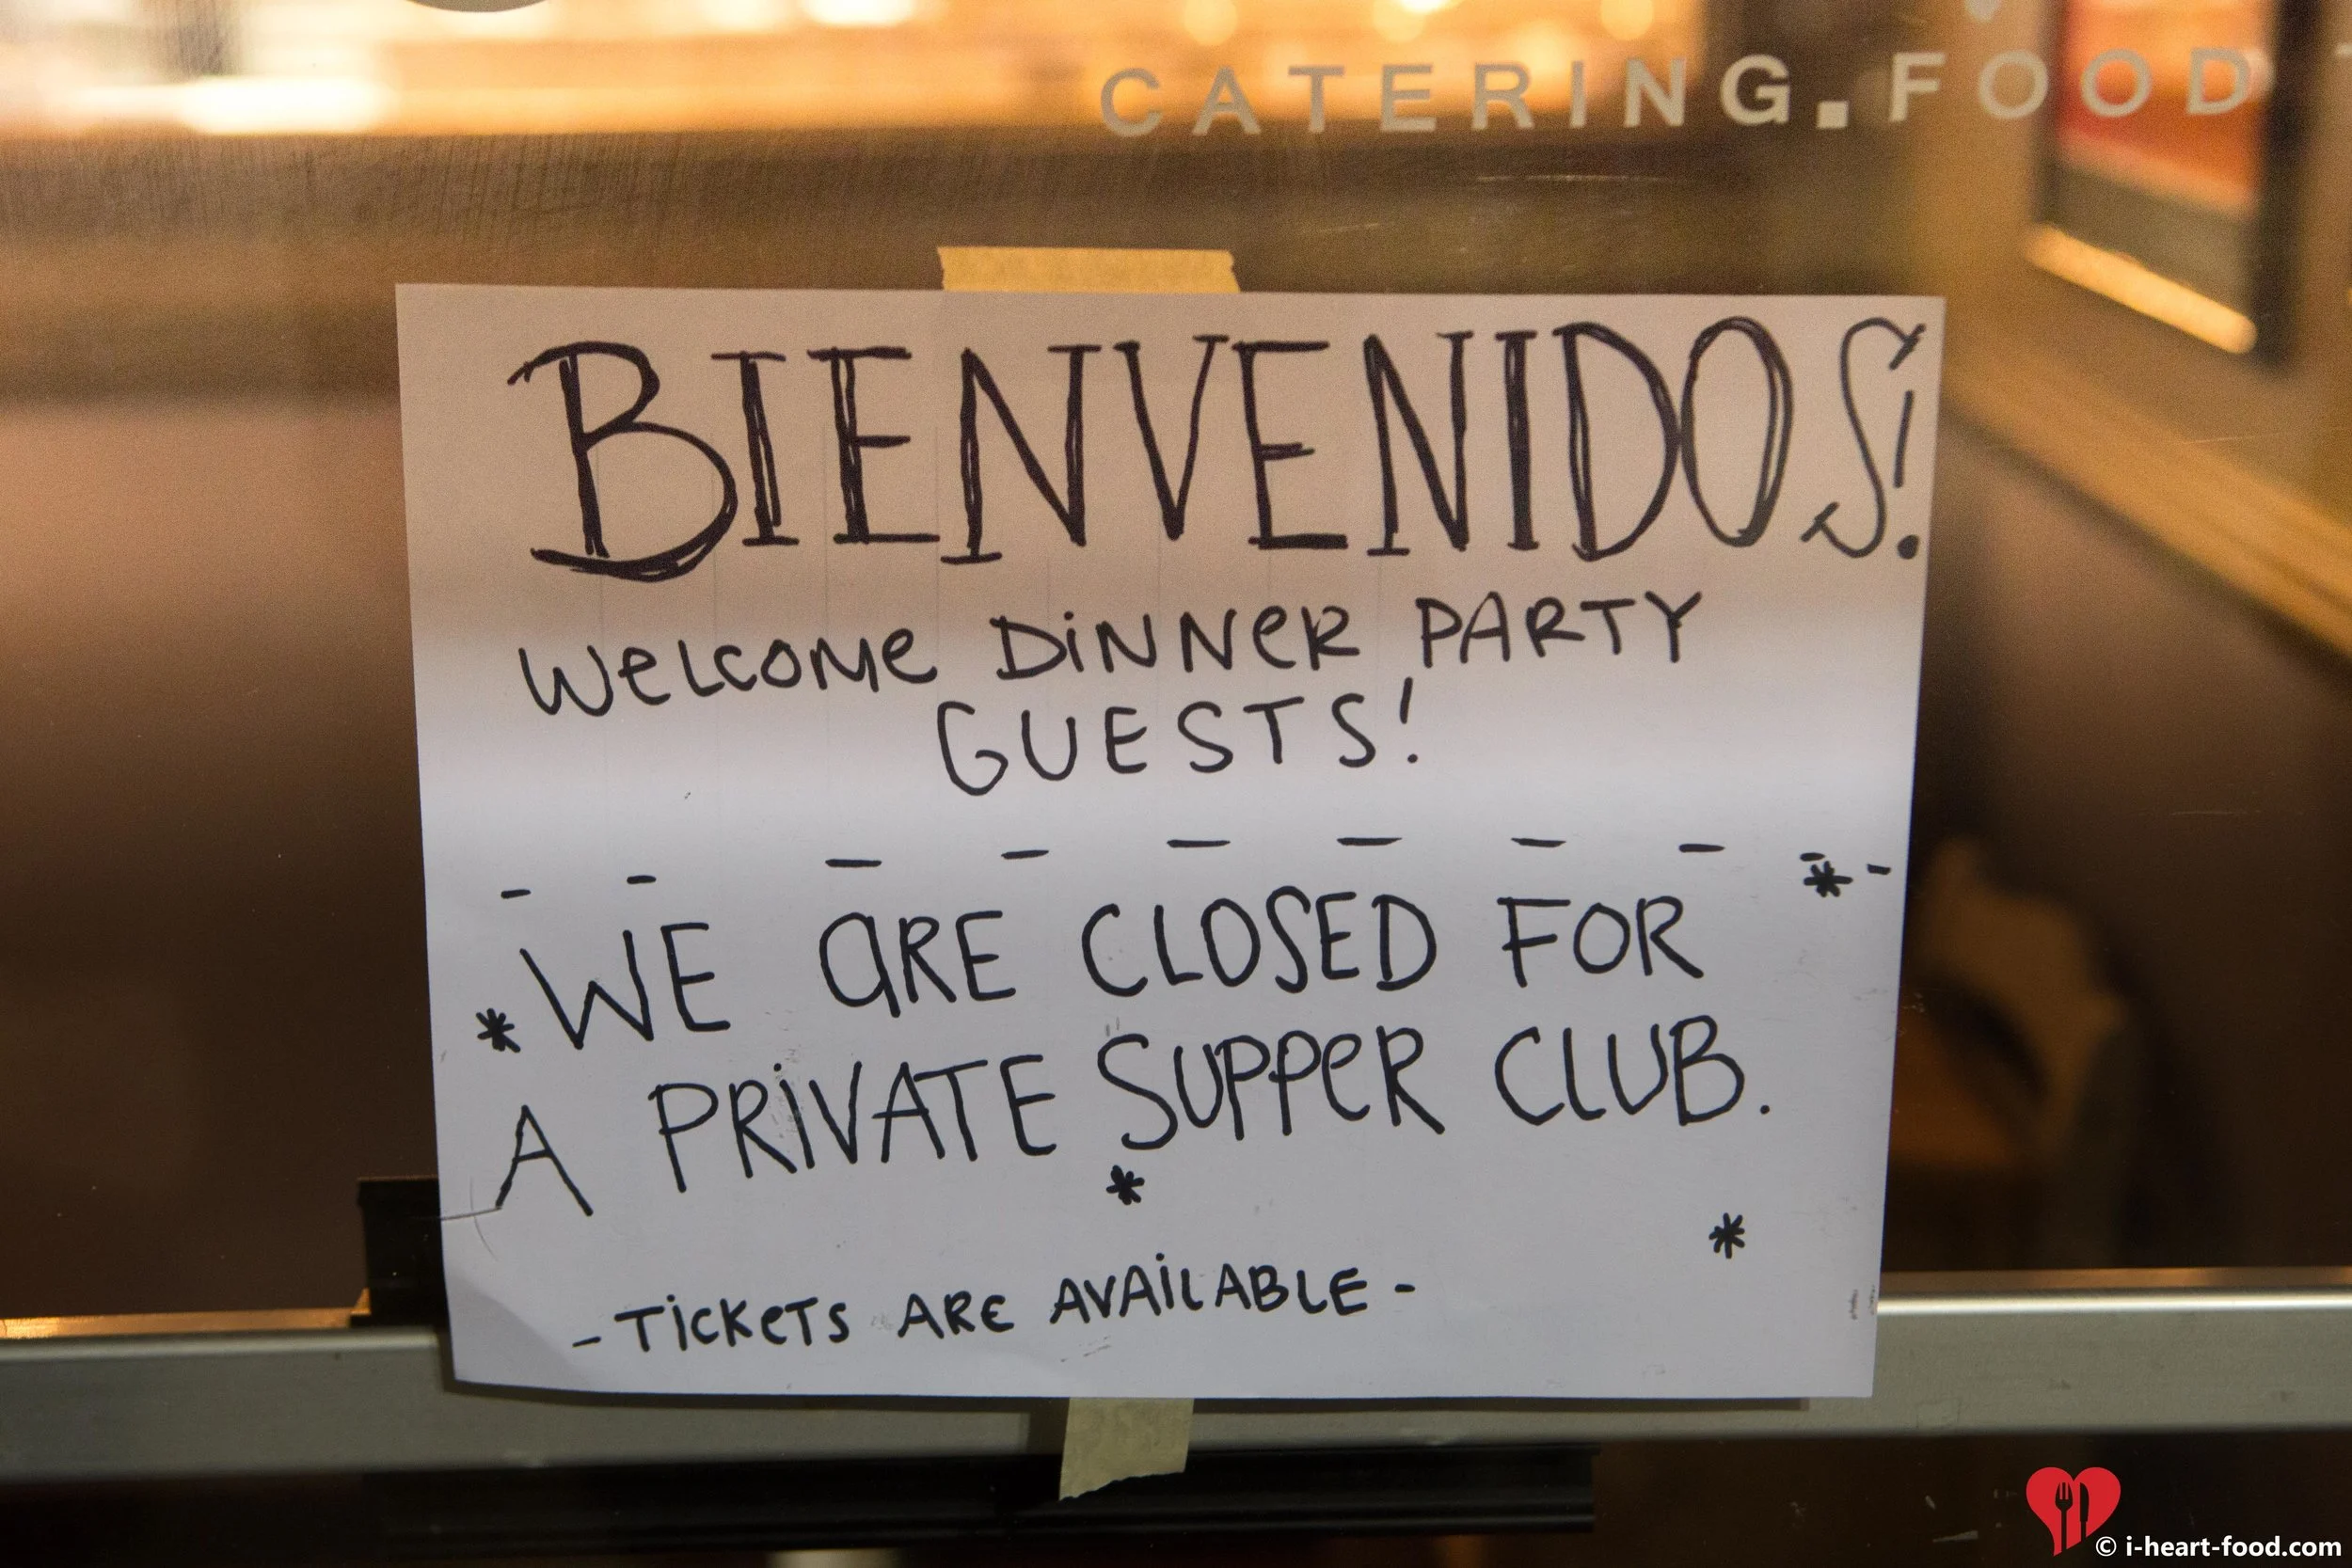 CATERING.FOOD
BIENVENIDOS!
WELCOME DINNER PARTY
GUESTS!
- - - - - - - - - -
*
* WE ARE CLOSED FOR
A PRIVATE SUPPER CLUB.
*
*
- TICKETS ARE AVAILABLE -
© i-heart-food.com